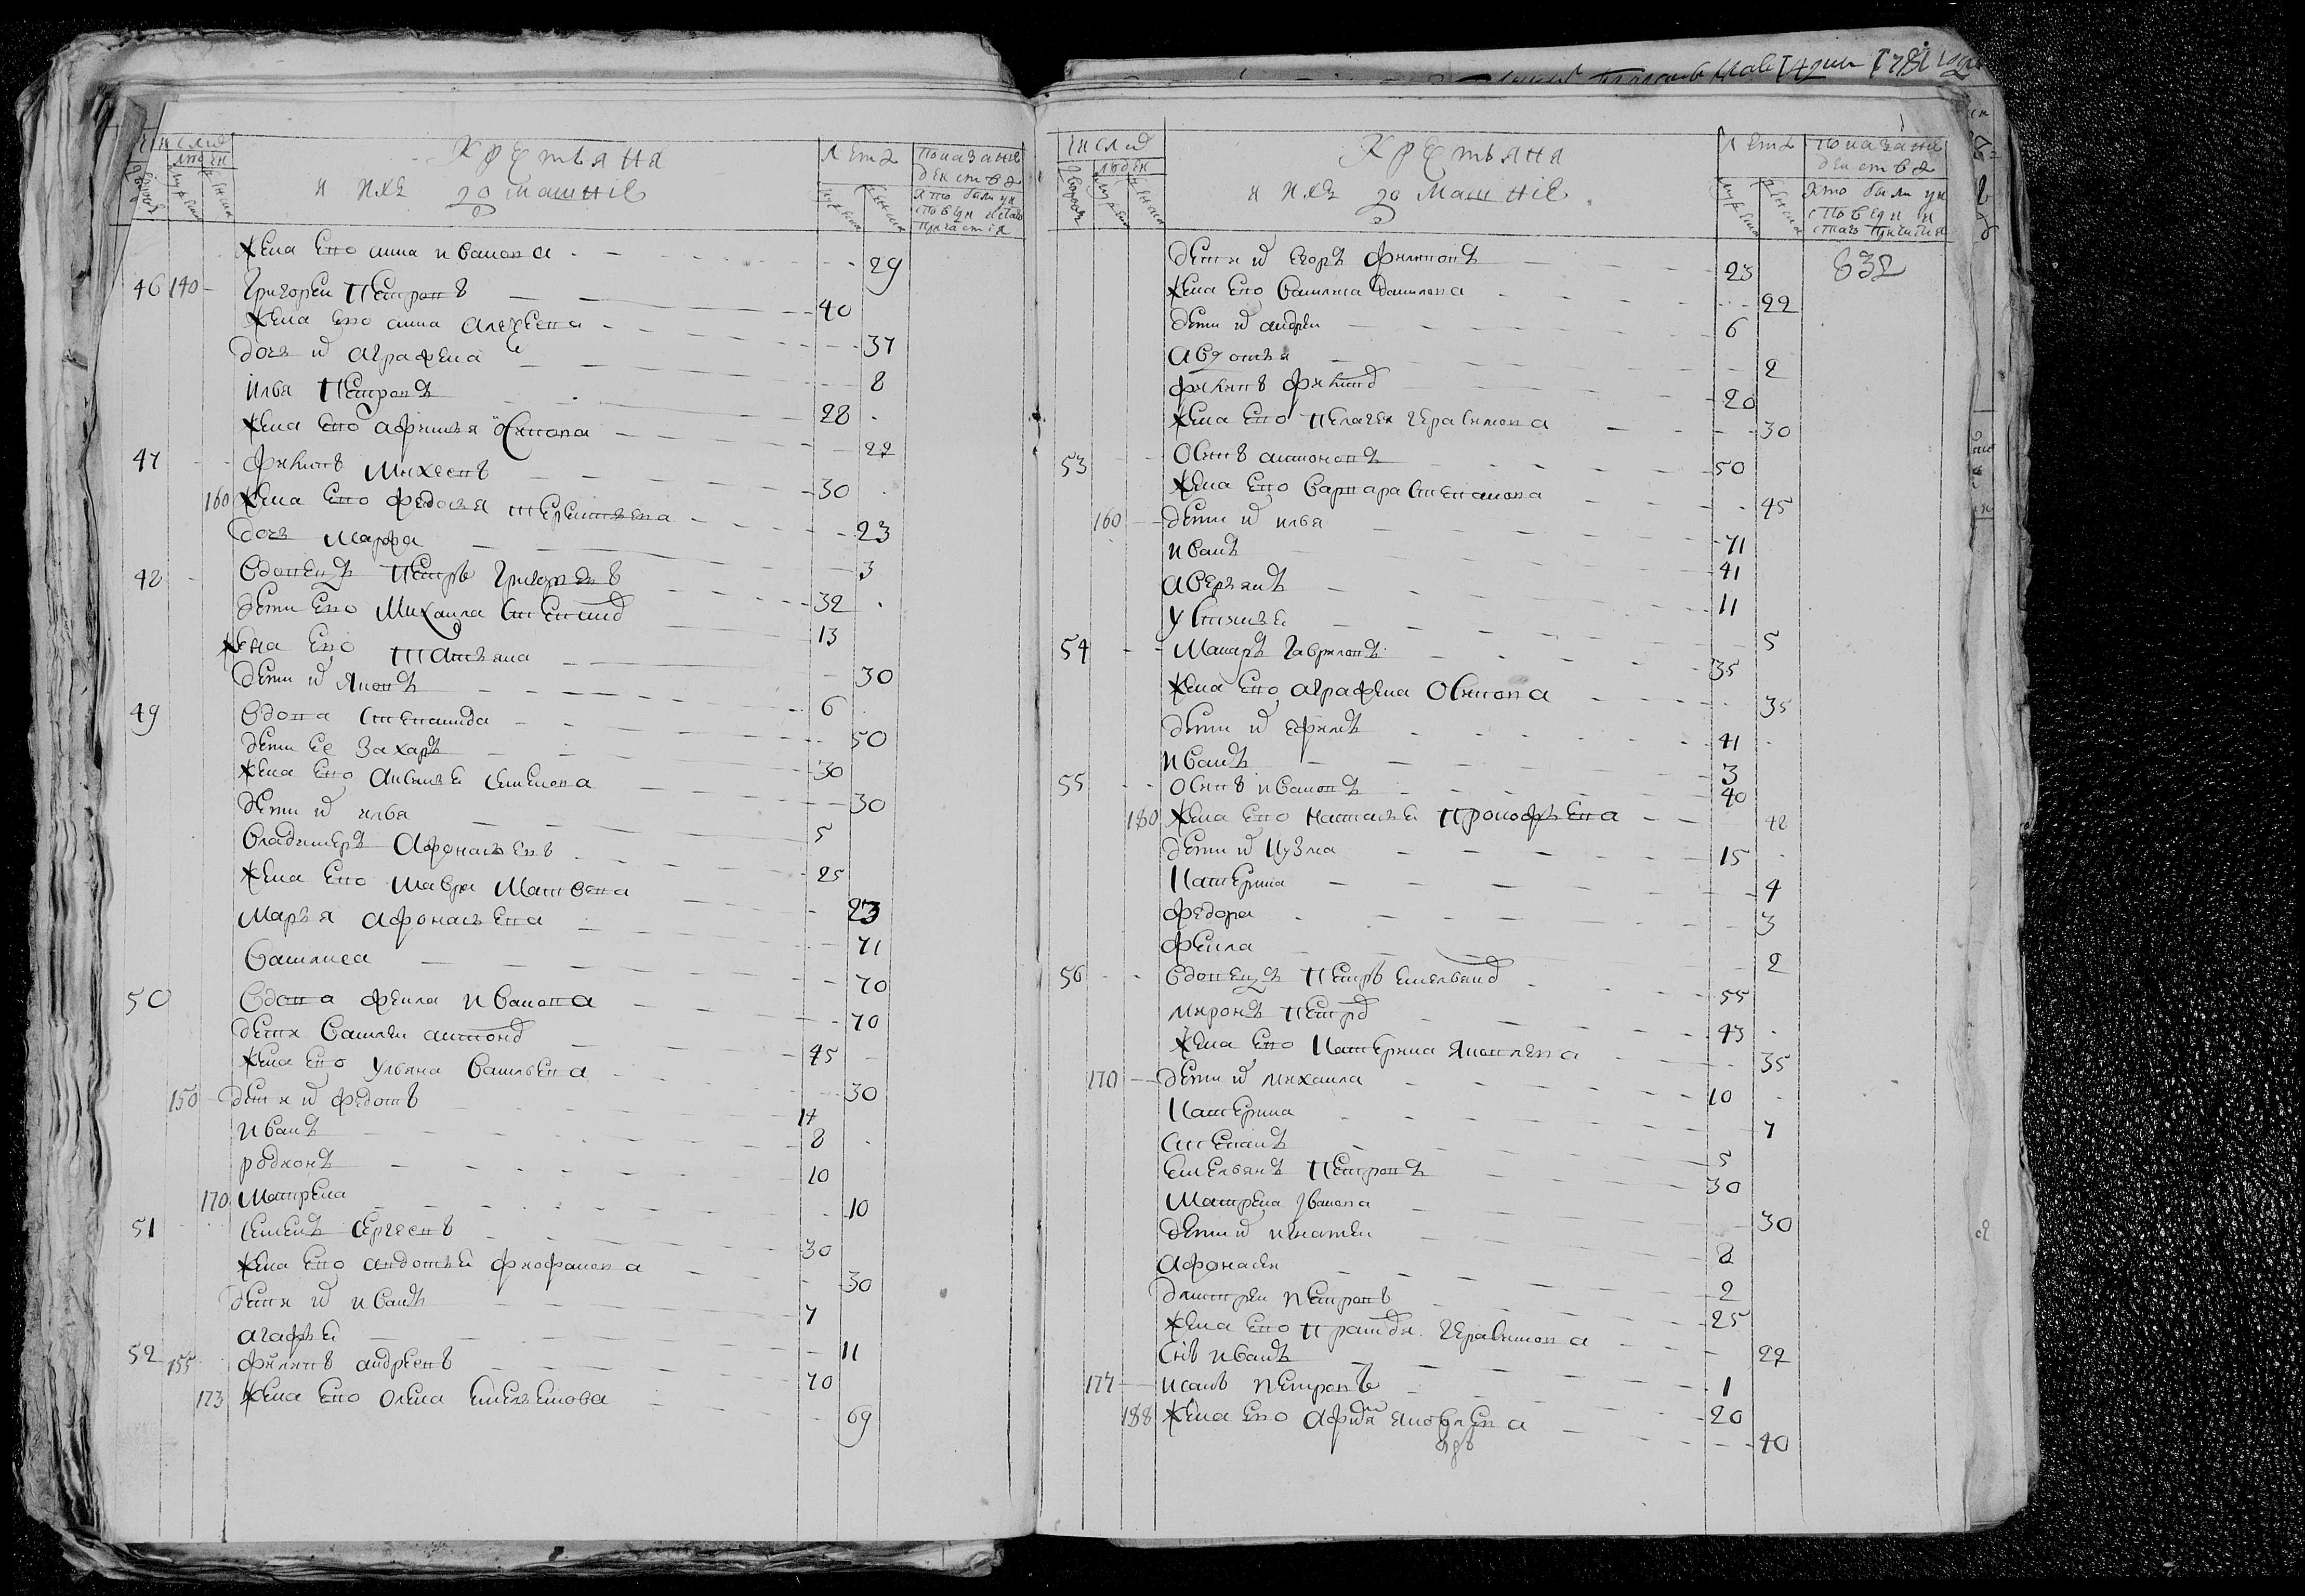 число
людей
Крестьяня
и ихъ домашние
летъ
показание
действа
кто были у и
споведи и стаго
причастия
жена ево анна иванова 29
46 140 Григореи Петровъ 40
жена ево анна алеѯеева 37
дочь их аграфена 8
илья Петровъ 28
жена ево афимья осипова 22
47 Филипъ Михеевъ 30
160 жена ево федосья терентьева 23
дочь марфа 3
48 вдовецъ Петръ Григорьевъ 32
дети ево Михаила степанид 13
жена ево Татьяна 30
дети их Яковъ 6
49 вдова степанида 50
дети ее Захаръ 30
жена ево аксинья семенова 30
дети их илья 5
владимеръ Афонасьевъ 25
жена ево мавра Матвеева 23
Марья афонасьева 71
василиса 70
50 вдова фекла иванова 70
дети василеи антонов 45
жена ево ульяна васильева 30
150 дети их федотъ 14
иванъ 8
родионъ 10
170 Матрена 10
51 семенъ сергеевъ 30
жена ево авдотья феофанова 30
дети их иванъ 7
агафья 11
52 155 филипъ андреевъ 70
173 жена ево олена емельянова 69
число
людей
Крестьяня
и ихъ домашние
летъ
показание
действа
кто были у и
споведи и
стаго причастия
дети их егоръ филиповъ 23 832
жена ево василиса данилова 22
дети их андреи 6
авдотья 2
филипъ филипов 20
жена ево пелагея герасимова 30
53 осипъ антоновъ 50
жена ево варвара степанова 45
160 дети их илья 71
иванъ 41
аверьянъ 11
устинья 5
54 Макаръ гавриловъ 35
жена ево аграфена осипова 35
дети их ефимъ 41
иванъ 3
55 осипъ ивановъ 40
180 жена ево наталья прокофьева 48
дети их кузма 15
катерина 4
федора 3
фекла 2
56 вдовецъ петръ емельянов 55
миронъ петров 43
жена ево катерина яковлева 35
170 дети их михаила 10
катерина 7
степанъ 5
емельянъ петровъ 30
матрена иванова 30
дети их игнатеи 8
афонасеи 2
дмитреи петровъ 25
жена ево прасковья герасимова 22
снъ иванъ 1
177 исакъ петровъ 20
188 жена ево яковлева 40